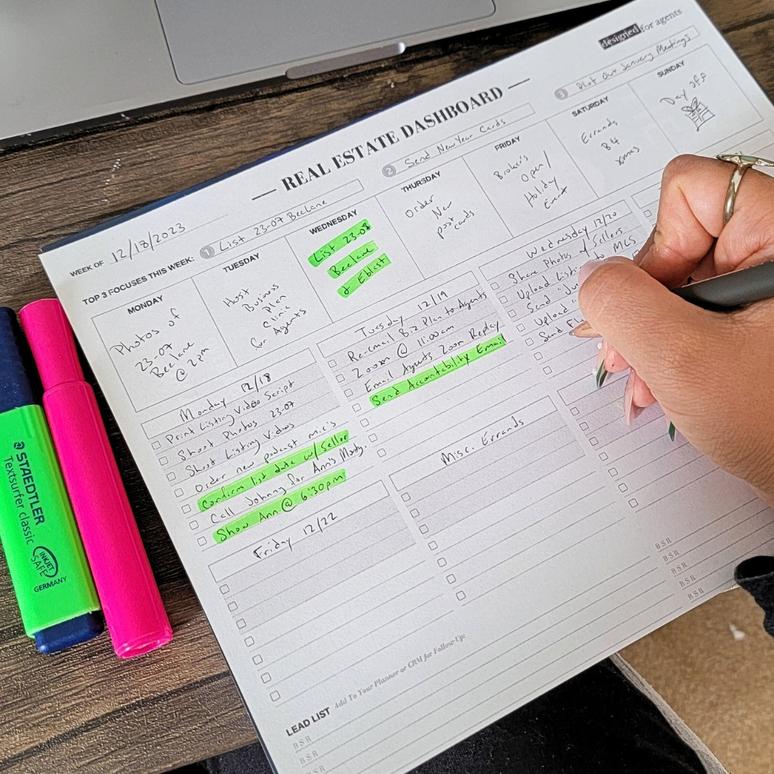 designed for agents
REAL ESTATE DASHBOARD
WEEK OF 12/18/2023
TOP 3 FOCUSES THIS WEEK:
1 List 23-07 BeeLane
2 Send New Year Cards
3 Plot Our January Meetings
MONDAY
Photos of
23-07
BeeLane
@ 2pm
TUESDAY
Host
Business
Plan
Clinic
for Agents
WEDNESDAY
List 23-07
BeeLane
& Eblast
THURSDAY
Order
New
post
cards
FRIDAY
Broker's
Open/
Holiday
Event
SATURDAY
Errands
B4
Xmas
SUNDAY
Day off
Monday 12/18
Print Listing Video Script
Shoot Photos 23-07
Shoot Listing Videos
Order new podcast mic's
Confirm list date w/ Seller
Call Johnny for Ann's Mortg.
Show Ann @ 6:30pm
Tuesday 12/19
Re-email Biz Plan to Agents
Zoom @ 11:00am
Email Agents Zoom Replay
Send Accountability Email
Wednesday 12/20
Share Photos w/ Sellers
Upload Listing to MLS
Send
Upload
Send
Friday 12/22
Misc. Errands
LEAD LIST Add To Your Planner or CRM for Follow-Up:
B S R
B S R
B S R
B S R
B S R
B S R
B S R
STAEDTLER
Textsurfer classic
INKJET
SAFE
GERMANY